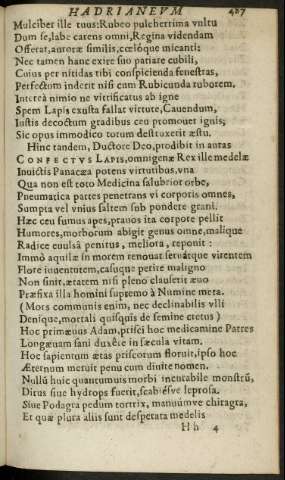 HADRIANEVM 487
Mulciber ille tuus: Rubeo pulcherrima vultu
Dum se, labe carens omni, Regina videndam
Offerat, auroræ similis, cœlóque micanti:
Nec tamen hanc exire suo patiare cubili,
Cuius per nitidas tibi conspicienda fenestras,
Perfectum inderit nisi cum Rubicunda ruborem.
Intereà nimio ne vitrificatus ab igne
Spem Lapis exusta fallat virtute, Cauendum,
Iustis decoctum gradibus ceu promouet ignis;
Sic opus immodico totum destruxerit æstu.
Hinc tandem, Ductore Deo, prodibit in auras
CONFECTVS LAPIS, omnigenæ Rex ille medelæ
Inuictis Panacæa potens virtutibus, vna
Qua non est toto Medicina salubrior orbe,
Pneumatica partes penetrans vi corporis omnes,
Sumpta vel vnius saltem sub pondere grani.
Hæc ceu fumus apes, prauos ita corpore pellit
Humores, morborum abigit genus omne, malique
Radice euulsâ penitus, meliora, reponit:
Immò aquilæ in morem renouat seruátque virentem
Flore iuuentutem, casuque perire maligno
Non sinit, ætatem nisi pleno clauserit æuo
Præfixa illa homini supremo à Numine meta.
(Mors communis enim, nec declinabilis vlli
Denique, mortali quisquis de semine cretus)
Hoc primæuus Adam, prisci hoc medicamine Patres
Longæuam sani duxêre in sæcula vitam.
Hoc sapientum ætas priscorum floruit, ipso hoc
Æternum meruit penu cum diuite nomen.
Nullũ huic quantumuis morbi ineutabile monstrũ,
Dirus siue hydrops fuerit, scabiésve leprosa.
Siue Podagra pedum tortrix, manuúmve chiragra,
Et quæ plura aliis sunt desperata medelis
Hh 4